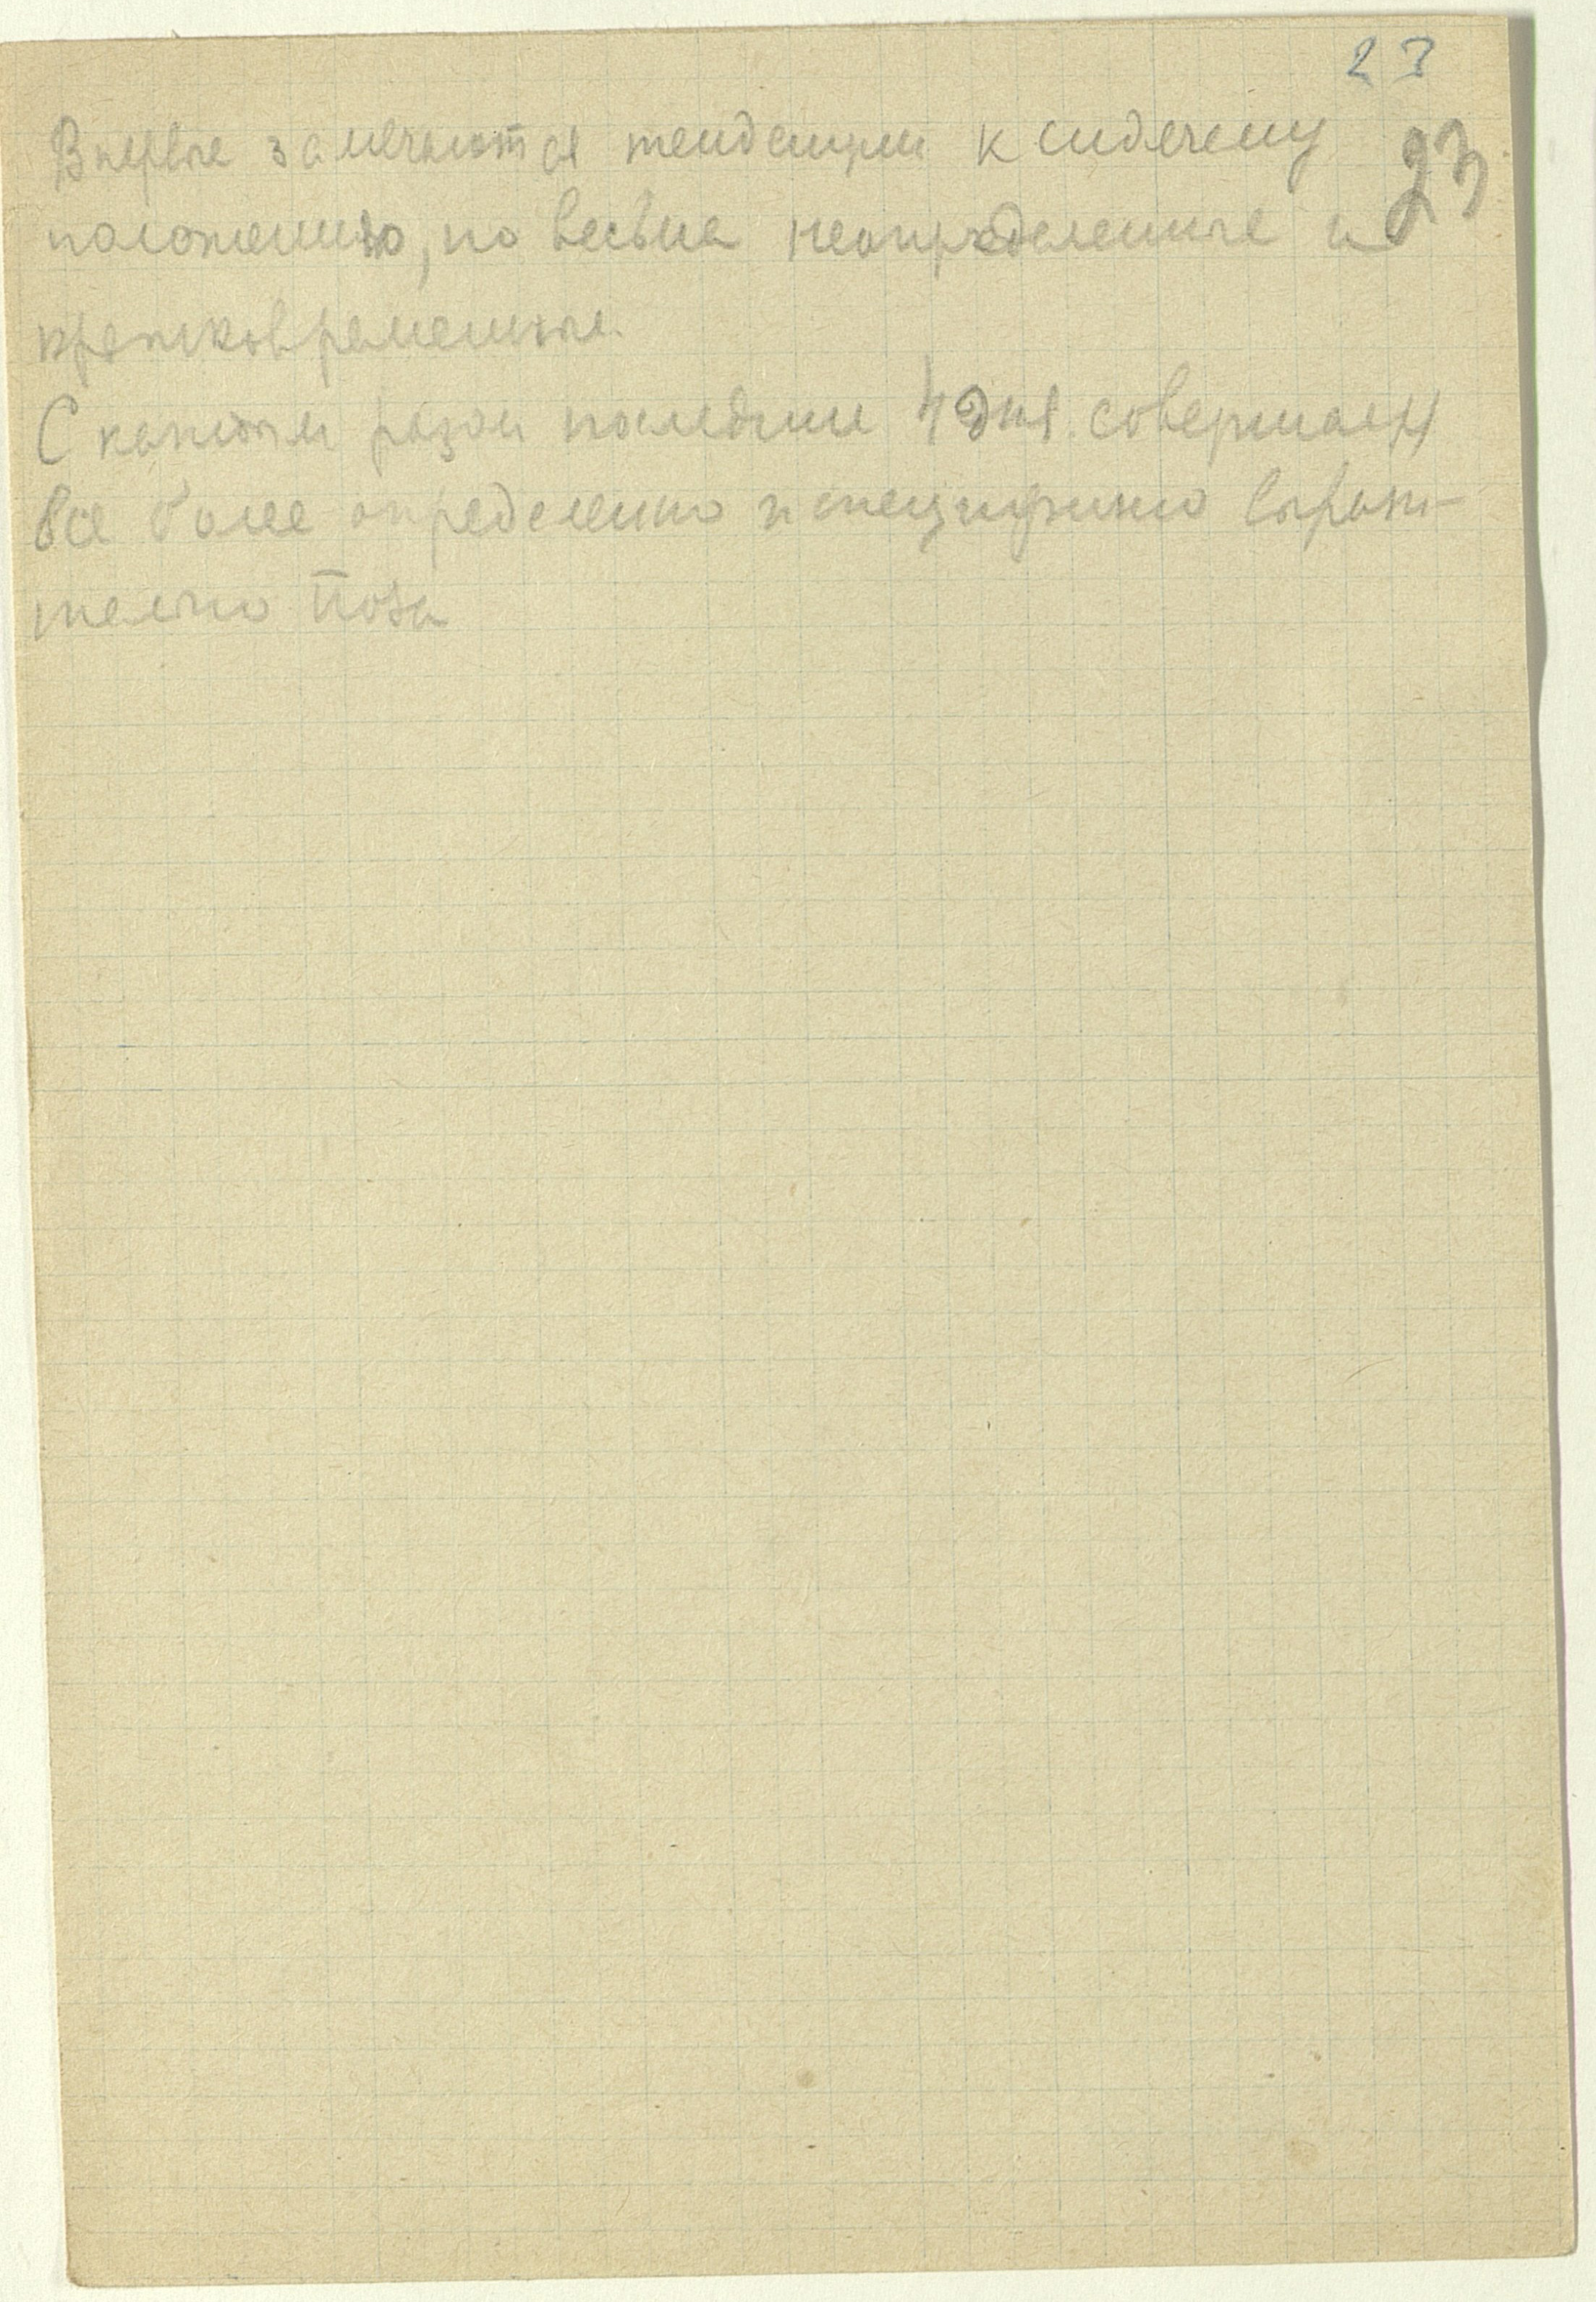 23
23
Впервые замечаются тенденции к сидячему
положению, но весьма неопределенные и
кратковременные.
С каждым разом последние 4 дня совершает
все более определенно и специфично вырази-
тельно поза